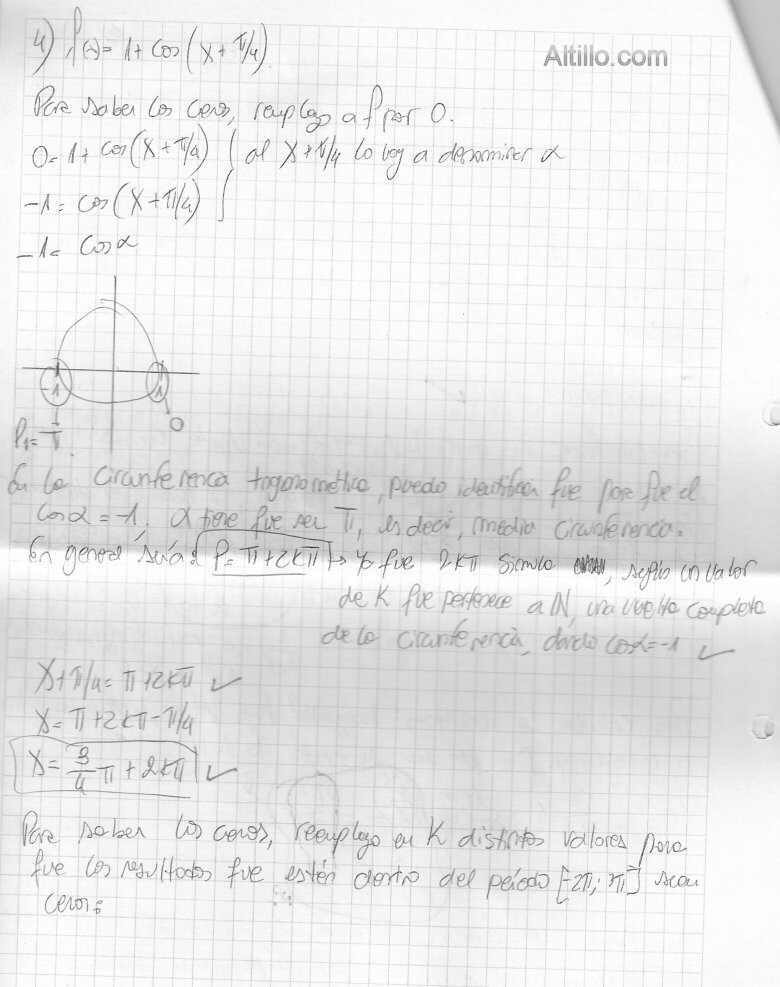 4) f(x)= 1+ cos(x+π/4)
Altillo.com
Para saber los ceros, remplazo a f por 0.
0=1+ cos(x+π/4) } al x+π/4 lo voy a denominar α
-1= cos(x+π/4)
-1= cosα
-1 1
0
P1= π
En la circunferencia trigonométrica, puedo identificar que para que el
cosα=-1, α tiene que ser π, es decir, media circunferencia.
En general sería: P=π+2kπ → ya que 2kπ simula , según un valor
de K que pertenece a ℕ, una vuelta completa
de la circunferencia, dando cosα=-1 ✓
x+π/4= π+2kπ ✓
x= π+2kπ-π/4
x= 3/4 π+2kπ ✓
Para saber los ceros, reemplazo en K distintos valores para
que los resultados que estén dentro del período [-2π; π] sean
ceros: